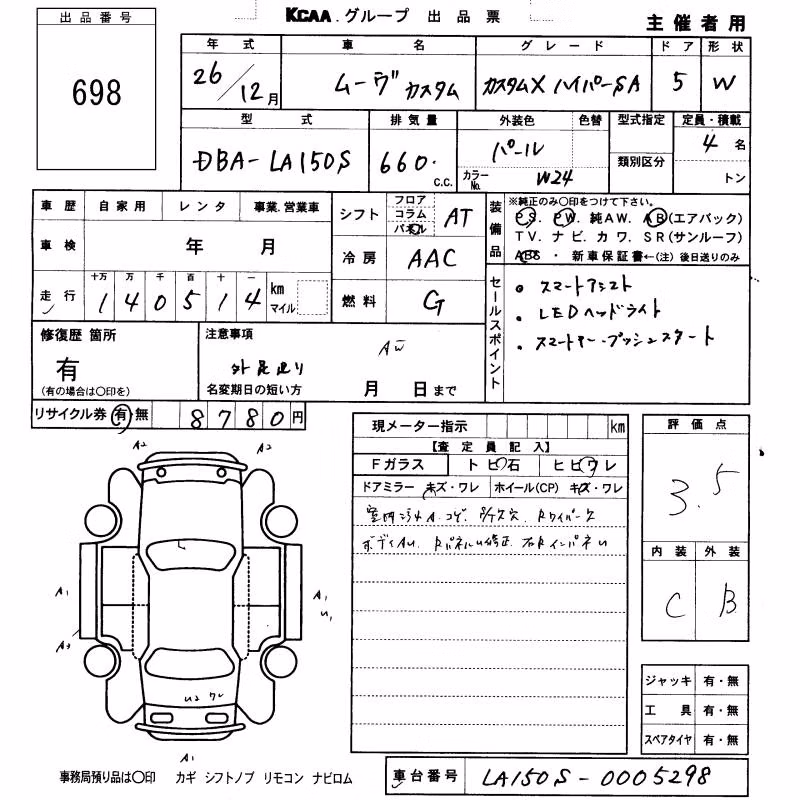 KCAA.グループ 出品票
主催者用
出品番号
698
年式 車名 グレード ドア 形状
26/12月 ムーヴ カスタム カスタムX ハイパーSA 5 W
型式 排気量 外装色 色替 型式指定 定員・積載
DBA-LA150S 660. C.C. パール 4 名
カラーNo. W24 類別区分 トン
車歴 自家用 レンタ 事業.営業車
シフト フロア コラム パネル AT
装備品
※純正のみ〇印をつけて下さい。
PS. PW. 純AW. AB(エアバック)
TV. ナビ. カワ. SR(サンルーフ)
ABS ・ 新車保証書←(注) 後日送りのみ
車検 年 月
冷房 AAC
走行 十万 万 千 百 十 一
140514 km マイル
燃料 G
セールスポイント
・スマートアシスト
・LEDヘッドライト
・スマートキー・プッシュスタート
修復歴 箇所
有
(有の場合は〇印を)
注意事項
名変期日の短い方 月 日まで
リサイクル券 有・無 8780円
現メーター指示 km
【査定員記入】
Fガラス トビ石 ヒビワレ
ドアミラー キズ・ワレ ホイール(CP) キズ・ワレ
評価点
3.5
内装 外装
C B
A2 A2
A1 A1
A3 U1
U2 ワレ
A1
ジャッキ 有・無
工具 有・無
スペアタイヤ 有・無
事務局預り品は〇印 カギ シフトノブ リモコン ナビロム
車台番号 LA150S-0005298